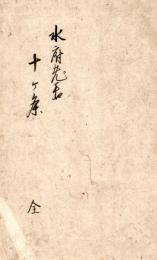 水府老士
十ヶ条
全